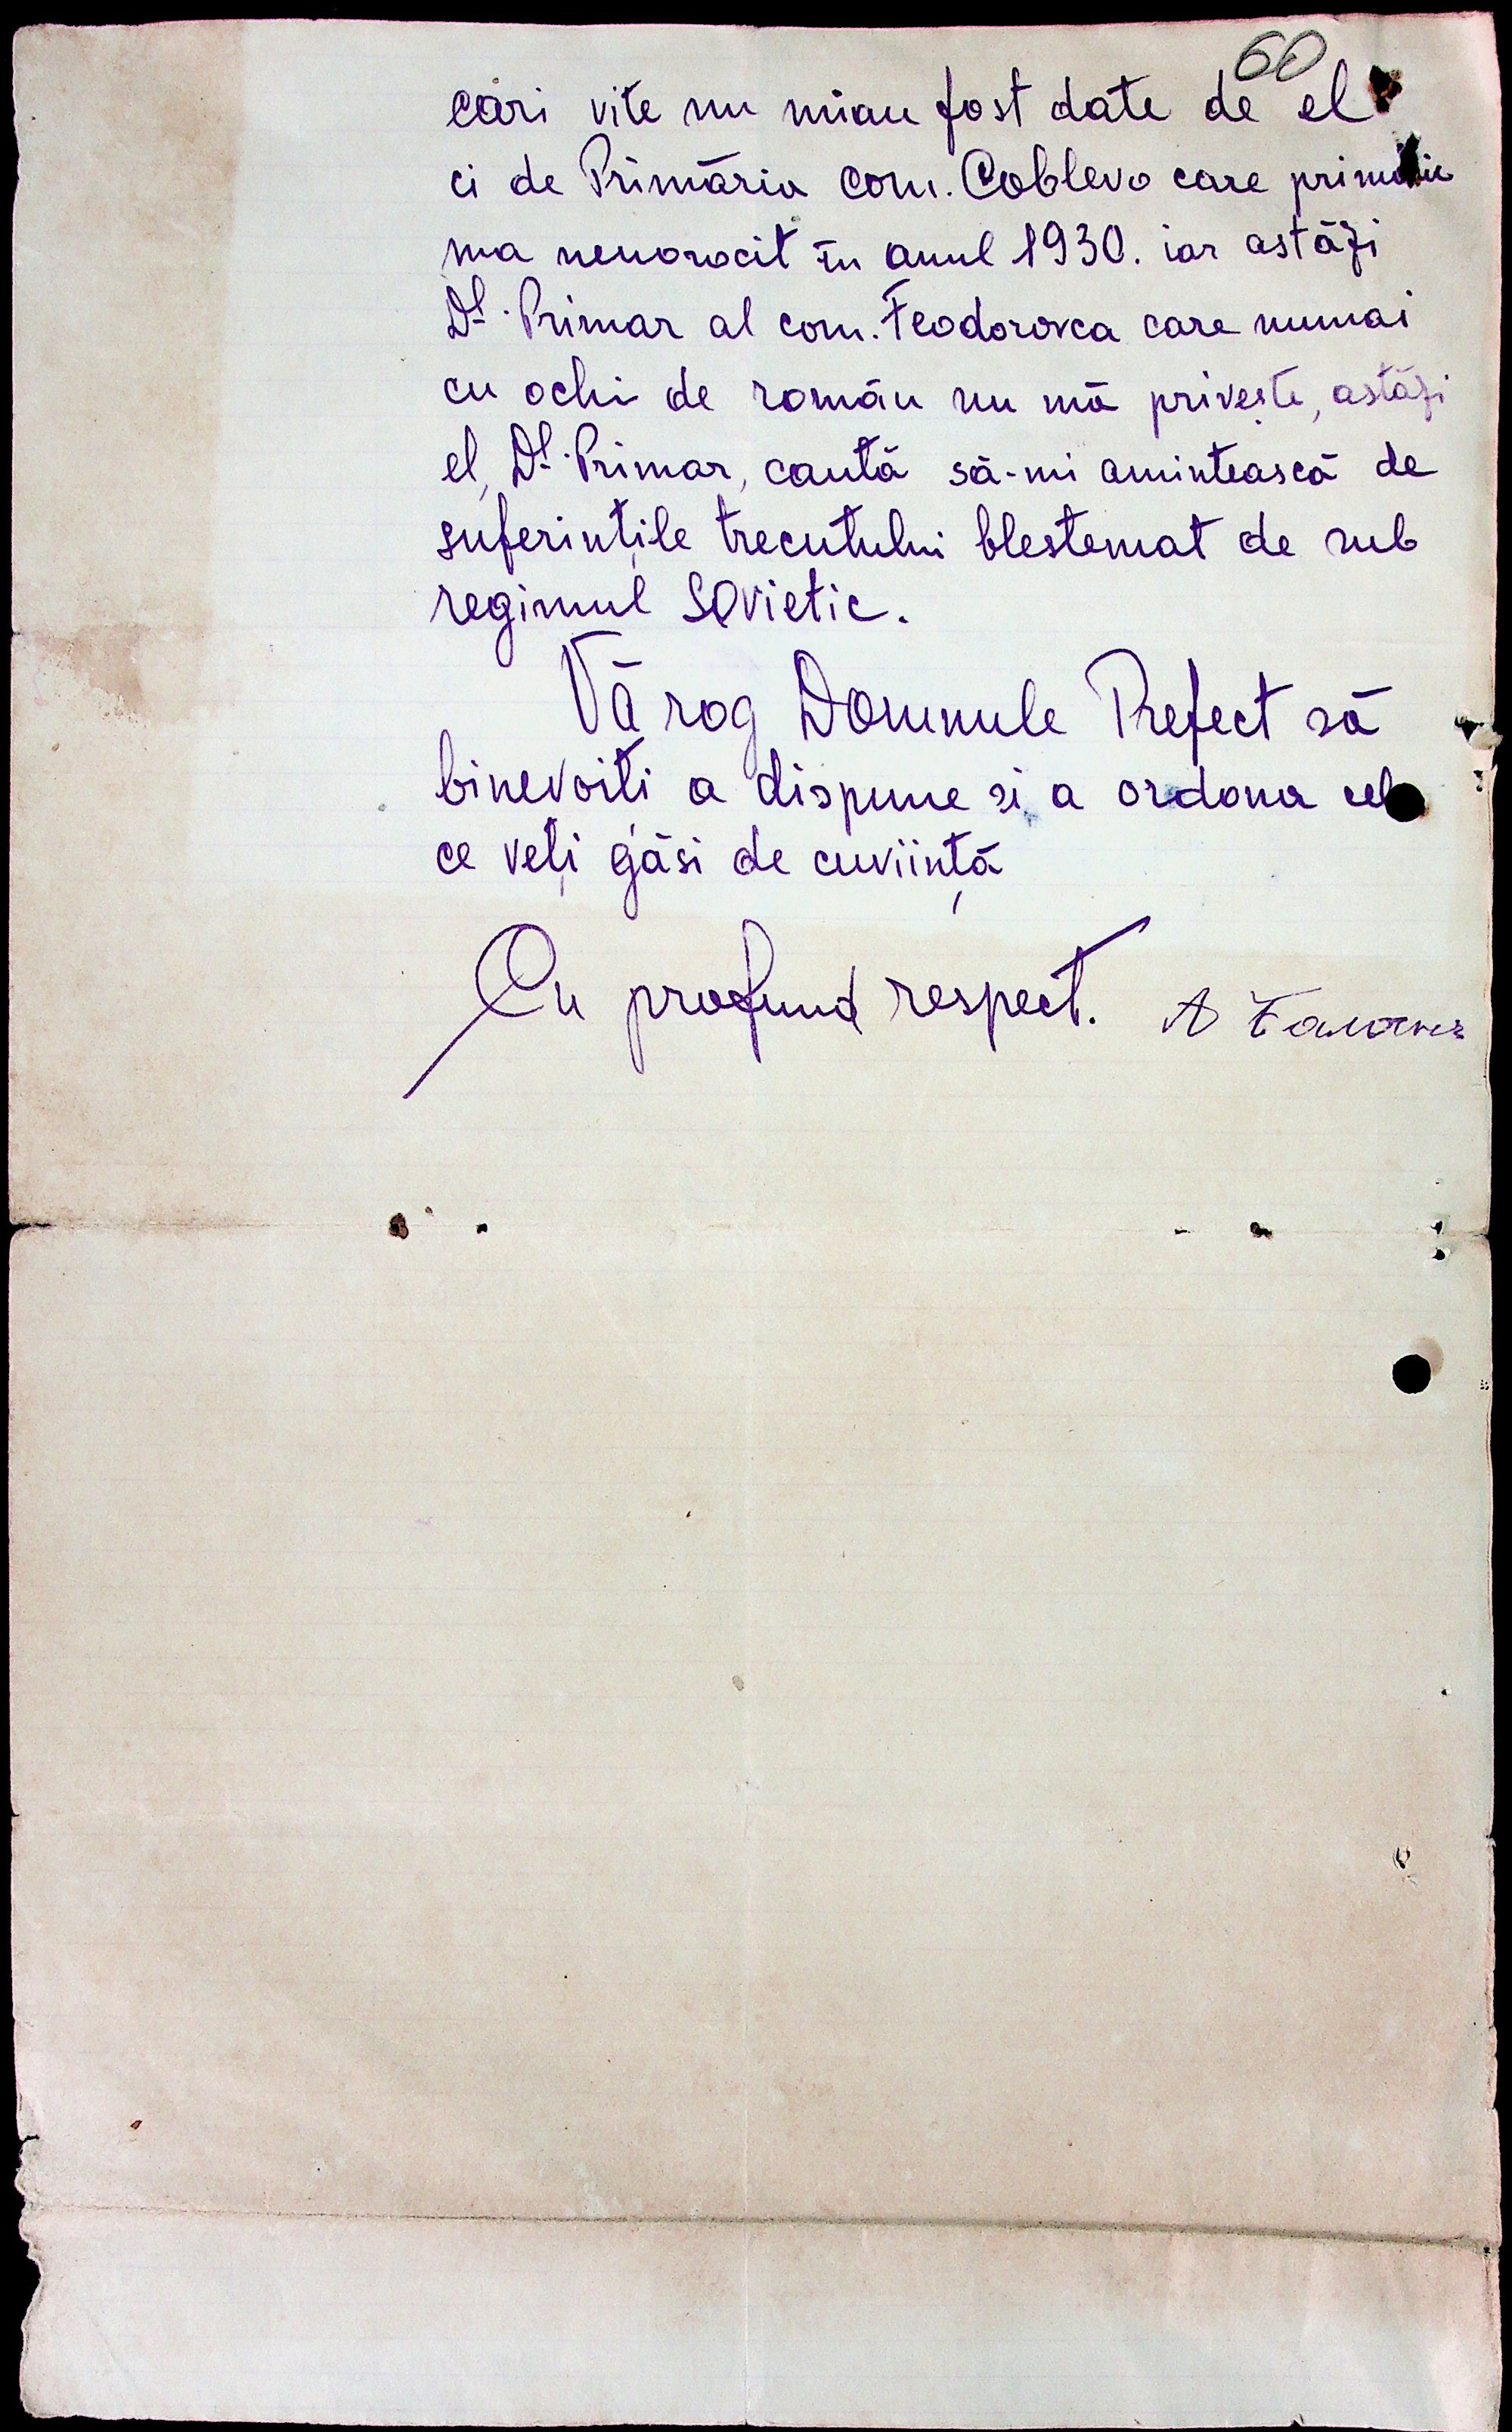 60
cari vite nu miau fost date de el
ci de Primăria com. Coblevo care
ma nenorocit în anul 1930. iar astăzi
Dl. Primar al com. Feodorovca care numai
cu ochi de român nu mă privește, astăzi
el, Dl. Primar, caută să-mi amintească de
suferințile trecutului blestemat de sub
regimul Sovietic.
Vă rog Domnule Prefect să
binevoiti a dispune si a ordona cel
ce veți găsi de cuviință
Cu profund respect. A